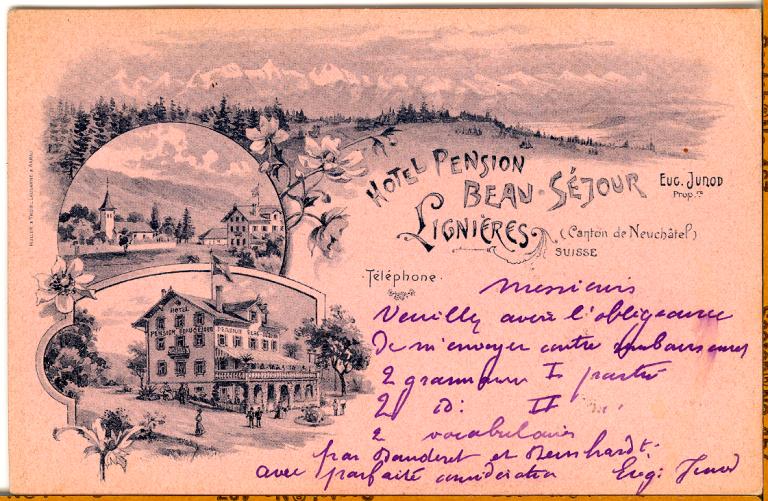 HOTEL PENSION
BEAU-SÉJOUR
EUG. JUNOD
Prop.re
LIGNIÈRES
(Canton de Neuchâtel)
SUISSE
Téléphone
HOTEL
PENSION BEAU-SÉJOUR
Messieurs
Veuillez avoir l'obligeance
de m'envoyer contre remboursement
2 grammaire I partie
2 id: II
2 vocabulaires
par Banderet et Reinhardt.
avec parfaite considération Eug. Junod